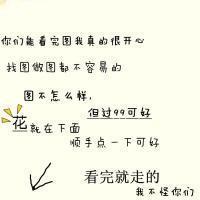 你们能看完图我真的很开心
找图做图都不容易的
图不怎么样,
但过99可好
花就在下面
顺手点一下可好
看完就走的
我不怪你们